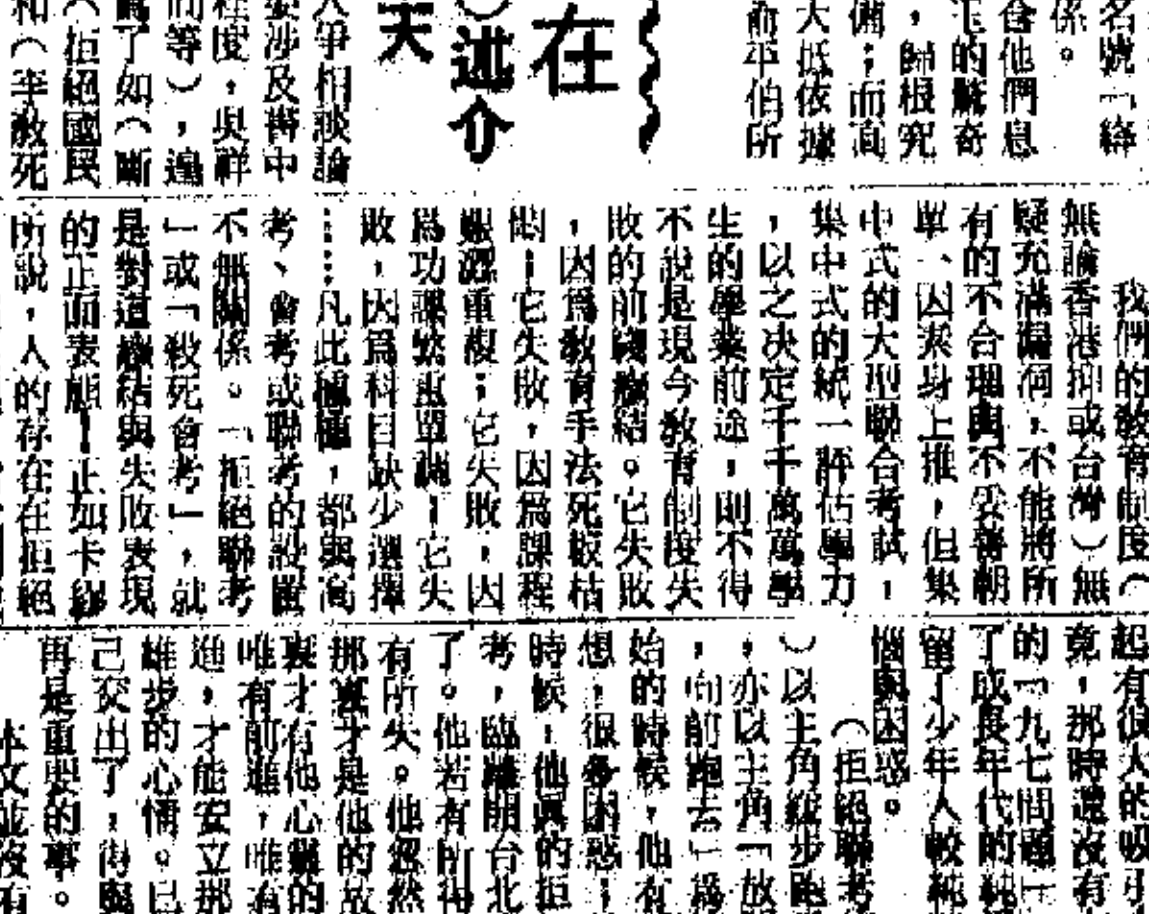 名號「絳
係。
會他們息
玉的驚奇
，歸根究
備；而高
大抵依據
俞平伯所
在
述介
天
人爭相談論
要涉及書中
程度，與祥
而等），遑
寫了如（斷
（拒絕國民
和（李敖死
我們的教育制度（
無論香港抑或台灣）無
疑充滿漏洞，不能將所
有的不合理與不妥善朝
單、因素身上推，但集
中式的大型聯合考試，
集中式的統一評估學力
，以之決定千千萬萬學
生的學業前途，則不得
不說是現今教育制度失
敗的前因癥結。它失敗
，因為教育手法死板枯
悶！它失敗，因為課程
艱澀重複；它失敗，因
為功課繁重單調！它失
敗，因為科目缺少選擇
……凡此種種，都與高
考、會考或聯考的設置
不無關係。「拒絕聯考
」或「殺死會考」，就
是對這癥結與失敗表現
的正面表態——正如卡繆
所說，人的存在在拒絕
起有很大的吸引
竟，那時還沒有
的「九七問題」
了成長年代的純
留了少年人較純
惱與困惑。
（拒絕聯考
）以主角緩步跑
，亦以主角「放
，向前跑去」為
始的時候，他有
想，很多困惑；
時候，他真的拒
考，臨離開台北
了。他若有所得
有所失。他忽然
那裏才是他的故
裏才有他心靈的
唯有前進，唯有
進，才能安立那
雄步的心情。已
己交出了，得與
再是重要的事。
本文並沒有